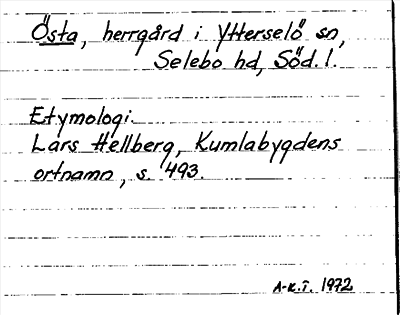 Östa, herrgård i Ytterselö sn,
Selebo hd, Söd. l.
Etymologi:
Lars Hellberg, Kumlabygdens
ortnamn, s. 493.
A-K.T. 1972